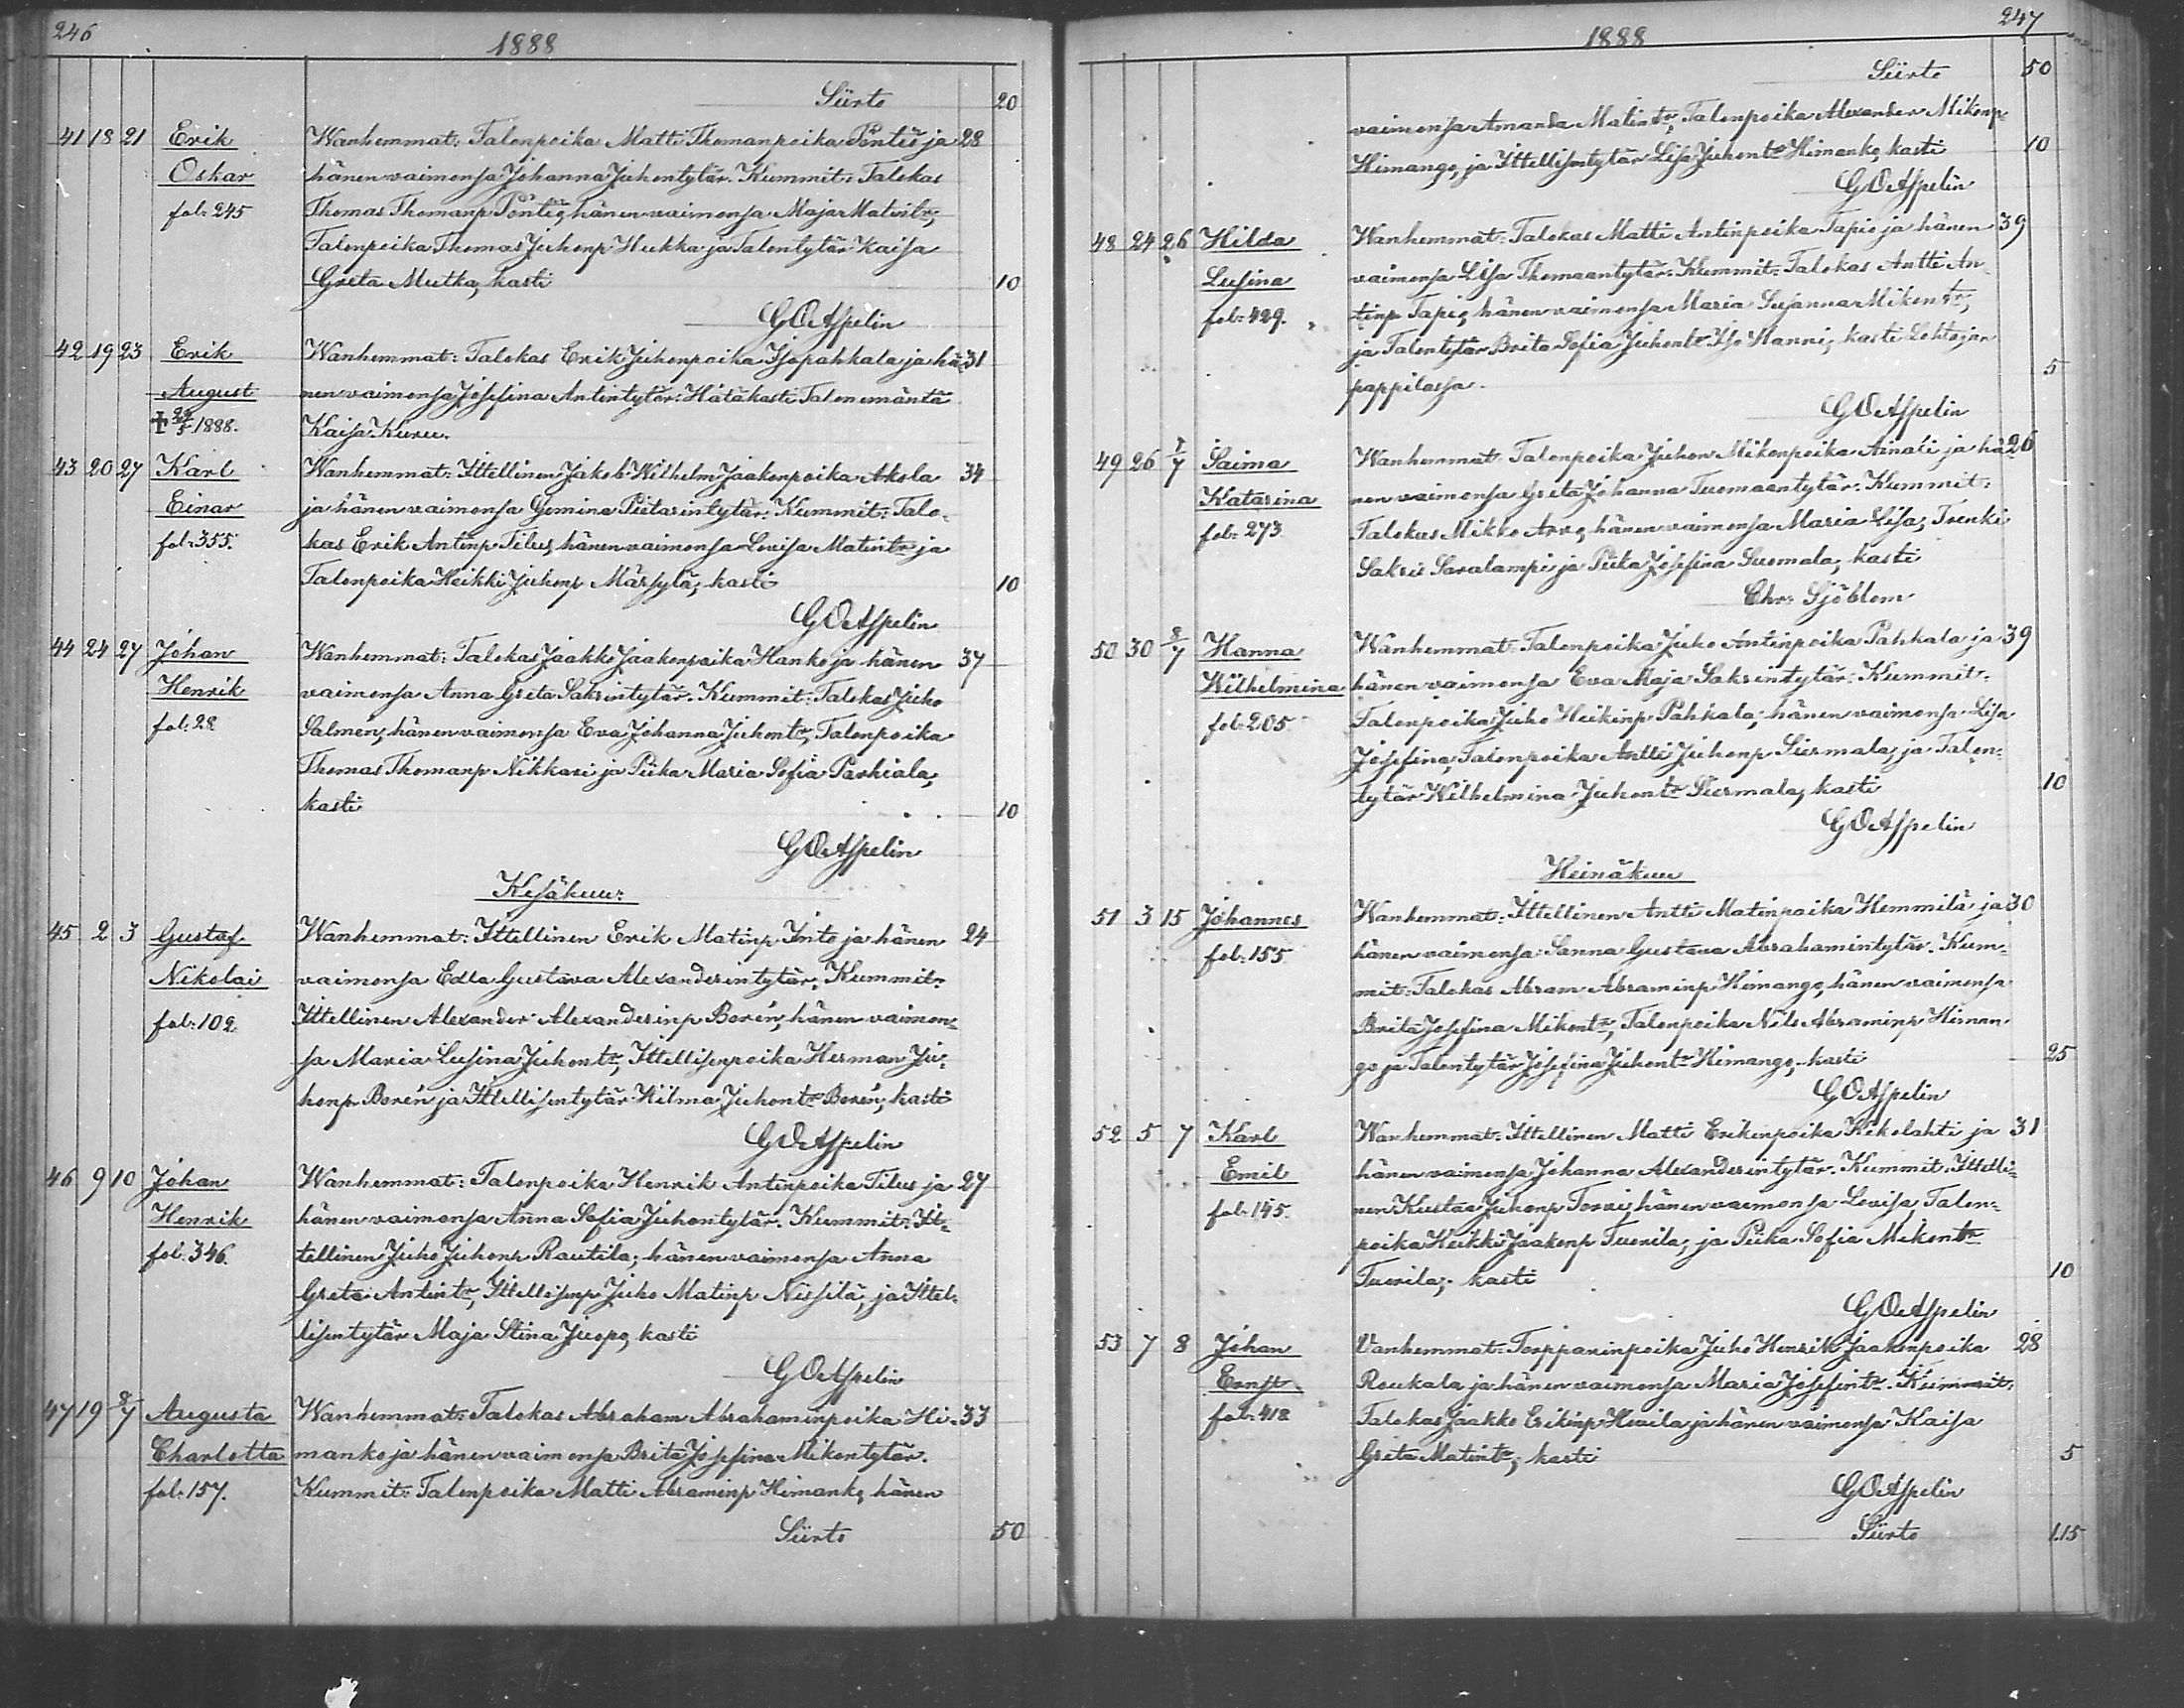 246
1888
Siirto 20
41 18 21 Erik Wanhemmat: Talonpoika Matti Thomanpoika Pöntiö ja 28
Oskar hänen vaimonsa Johanna Juhontytär. Kummit: Talokas
fol. 245 Thomas Thomanp Pöntiö, hänen vaimonsa Maja Matintr,
Talonpoika Thomas Juhonp Hukka ja Talontytär Kaisa
Greta Mutka, kasti 10
G O Aspelin
42 19 23 Erik Wanhemmat: Talokas Erik Juhonpoika Isopahkala ja hä- 31
August nen vaimonsa Josefina Antintytär: Hätäkasti Talonemäntä
1888. Kaisa Kuru.
43 20 27 Karl Wanhemmat: Ittellinen Jakob Wilhelm Jaakonpoika Akola 34
Einar ja hänen vaimonsa Gemina Pietarintytär: Kummit: Talo-
fol. 355. kas Erik Antinp Tilus, hänen vaimonsa Lovisa Matintr ja
Talonpoika Heikki Juhonp Märsylä, kasti 10
G O Aspelin
44 24 27 Johan Wanhemmat: Talokas Jaakko Jaakonpoika Hanko ja hänen 37
Henrik vaimonsa Anna Greta Sakrintytär. Kummit: Talokas Juho
fol. 28 Salmén, hänen vaimonsa Eva Johanna Juhontr, Talonpoika
Thomas Thomanp Nikkari ja Piika Maria Sofia Parhiala,
kasti 10
G O Aspelin
Kesäkuu:
45 2 3 Gustaf Wanhemmat: Ittellinen Erik Matinp Into ja hänen 24
Nikolai vaimonsa Edla Gustava Alexanderintytär: Kummit:
fol. 102. Ittellinen Alexander Alexanderinp Borén, hänen vaimon-
sa Maria Lusina Juhontr, Ittellisenpoika Herman Ju-
honp Borén ja Ittellisentytär Hilma Juhontr Borén, kasti
G O Aspelin
46 9 10 Johan Wanhemmat: Talonpoika Henrik Antinpoika Tilus ja 27
Henrik hänen vaimonsa Anna Sofia Juhontytär. Kummit: It-
fol. 346. tellinen Juho Juhonp Rautila, hänen vaimonsa Anna
Greta Antintr, Ittellisenp Juho Matinp Nissilä, ja Ittel-
lisentytär Maja Stina Juopo, kasti
G O Aspelin
47 19 8/7 Augusta Wanhemmat: Talokas Abraham Abrahaminpoika Hi- 33
Charlotta manko ja hänen vaimonsa Brita Josefina Mikontytär.
fol. 157. Kummit: Talonpoika Matti Abraminp Himanko, hänen
Siirto 50
247
1888
Siirto 50
vaimonsa Amanda Matintr, Talonpoika Alexander Mikonp
Himango, ja Ittellisentytär Lisa Juhontr Himanko, kasti 10
G O Aspelin
48 24 26 Hilda Wanhemmat: Talokas Matti Antinpoika Tapio ja hänen 39
Lusina vaimonsa Lisa Thomaantytär. Kummit: Talokas Antti An-
fol. 429. tinp Tapio, hänen vaimonsa Maria Susanna Mikontr,
ja Talontytär Brita Sofia Juhontr Iso Hanni, kasti Lohtajan
pappilassa. 5
G O Aspelin
49 26 1/7 Saima Wanhemmat: Talonpoika Juhon Mikonpoika Ainali ja hä- 26
Katarina nen vaimonsa Greta Johanna Tuomaantytär. Kummit:
fol. 273 Talokas Mikko Arvo, hänen vaimonsa Maria Lisa, Trenki
Sakri Saralampi ja Piika Josefina Suomala, kasti
Chr. Sjöblom
50 30 8/7 Hanna Wanhemmat: Talonpoika Juho Antinpoika Pahkala ja 39
Wilhelmina hänen vaimonsa Eva Maja Sakrintytär: Kummit:
fol. 205. Talonpoika Juho Heikinp Pahkala, hänen vaimonsa Lisa
Josefina, Talonpoika Antti Juhonp Siermala, ja Talon-
tytär Wilhelmina Juhontr Siermala, kasti 10
G O Aspelin
Heinäkuu
51 3 15 Johannes Wanhemmat: Ittellinen Antti Matinpoika Hemmilä ja 30
fol. 155. hänen vaimonsa Sanna Gustava Abrahamintytär. Kum-
mit: Talokas Abram Abraminp Himango, hänen vaimonsa
Brita Josefina Mikontr, Talonpoika Nils Abraminp Himan-
go ja Talontytär Josefina Juhontr Himango, kasti 25
G O Aspelin
52 5 7 Karl Wanhemmat: Ittellinen Matti Erikinpoika Kikolahti ja 31
Emil hänen vaimonsa Johanna Alexanderintytär. Kummit: Ittelli-
fol. 145. nen Kustaa Juhonp Torvi, hänen vaimonsa Lovisa, Talon-
poika Heikki Jaakonp Tuorila, ja Piika Sofia Mikontr
Tuorila, kasti 10
G O Aspelin
53 7 8 Johan Vanhemmat: Torpparinpoika Juho Henrik Jaakonpoika 28
Ernst Roukala ja hänen vaimonsa Maria Josefintr. Kummit:
fol. 418 Talokas Jaakko Erikinp Huuila ja hänen vaimonsa Kaisa
Greta Matintr, kasti 5
G O Aspelin
Siirto 1.15